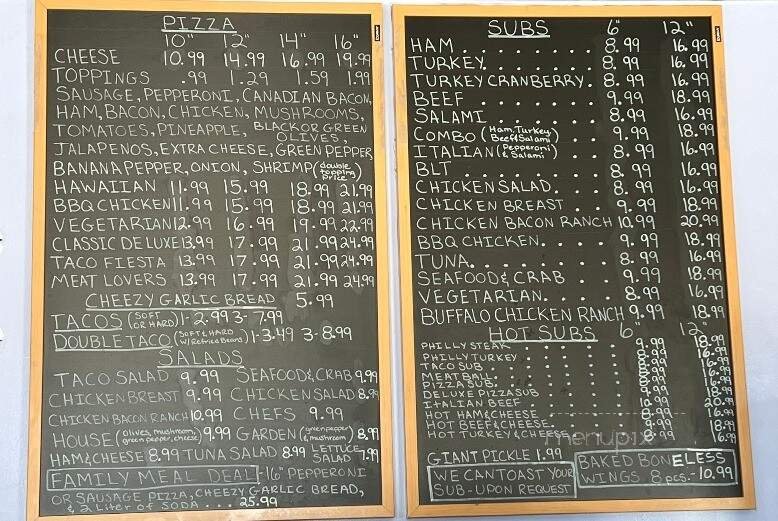 PIZZA
10" 12" 14" 16"
CHEESE 10.99 14.99 16.99 19.99
TOPPINGS .99 1.29 1.59 1.99
SAUSAGE, PEPPERONI, CANADIAN BACON,
HAM, BACON, CHICKEN, MUSHROOMS,
TOMATOES, PINEAPPLE, BLACK OR GREEN OLIVES,
JALAPENOS, EXTRA CHEESE, GREEN PEPPER
BANANA PEPPER, ONION, SHRIMP (double topping price)
HAWAIIAN 11.99 15.99 18.99 21.99
BBQ CHICKEN 11.99 15.99 18.99 21.99
VEGETARIAN 12.99 16.99 19.99 22.99
CLASSIC DELUXE 13.99 17.99 21.99 24.99
TACO FIESTA 13.99 17.99 21.99 24.99
MEAT LOVERS 13.99 17.99 21.99 24.99
CHEEZY GARLIC BREAD 5.99
TACOS (SOFT OR HARD) 1-2.99 3-7.99
DOUBLE TACO (SOFT & HARD W/Refried Beans) 1-3.49 3-8.99
SALADS
TACO SALAD 9.99 SEAFOOD & CRAB 9.99
CHICKEN BREAST 9.99 CHICKEN SALAD 8.99
CHICKEN BACON RANCH 10.99 CHEFS 9.99
HOUSE (olives, mushroom, green pepper, cheese) 9.99 GARDEN (green pepper & mushroom) 8.99
HAM & CHEESE 8.99 TUNA SALAD 8.99 LETTUCE SALAD 1.99
FAMILY MEAL DEAL - 16" PEPPERONI
OR SAUSAGE PIZZA, CHEEZY GARLIC BREAD,
& 2 Liter of SODA . . . 25.99
SUBS 6" 12"
HAM . . . . . . . 8.99 16.99
TURKEY . . . . . . 8.99 16.99
TURKEY CRANBERRY . 8.99 16.99
BEEF . . . . . . . 9.99 18.99
SALAMI . . . . . . 8.99 16.99
COMBO (Ham, Turkey, Beef & Salami) 9.99 18.99
ITALIAN (Pepperoni & Salami) 8.99 16.99
BLT . . . . . . . 8.99 16.99
CHICKEN SALAD . . . 8.99 16.99
CHICKEN BREAST . . 9.99 18.99
CHICKEN BACON RANCH 10.99 20.99
BBQ CHICKEN . . . . 9.99 18.99
TUNA . . . . . . . 8.99 16.99
SEAFOOD & CRAB 9.99 18.99
VEGETARIAN . . . . 8.99 16.99
BUFFALO CHICKEN RANCH 9.99 18.99
HOT SUBS 6" 12"
PHILLY STEAK 9.99 18.99
PHILLY TURKEY
TACO SUB
MEATBALL
PIZZA SUB
DELUXE PIZZA SUB
ITALIAN BEEF
HOT HAM & CHEESE
HOT BEEF & CHEESE
HOT TURKEY & CHEESE 8.99 16.99
GIANT PICKLE 1.99
WE CAN TOAST YOUR
SUB - UPON REQUEST
BAKED BONELESS
WINGS 8 pcs. - 10.99
menupix